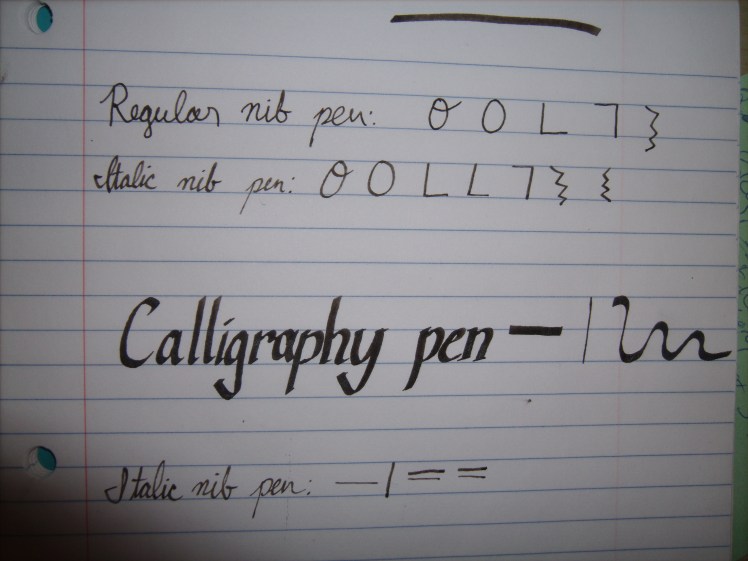 Regular nib pen: O O L ㄱ
Italic nib pen: O O L L ㄱ
Calligraphy pen
Italic nib pen: